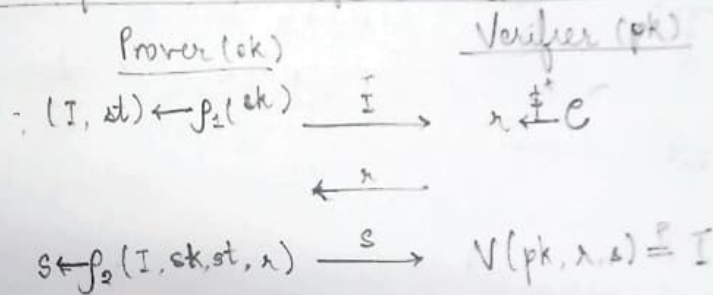 Prover (sk) Verifier (pk)
(I, st) ← P₁(sk) I → r ←$ C
← r
s ← P₂(I, sk, st, r) s → V(pk, r, s) ≟ I